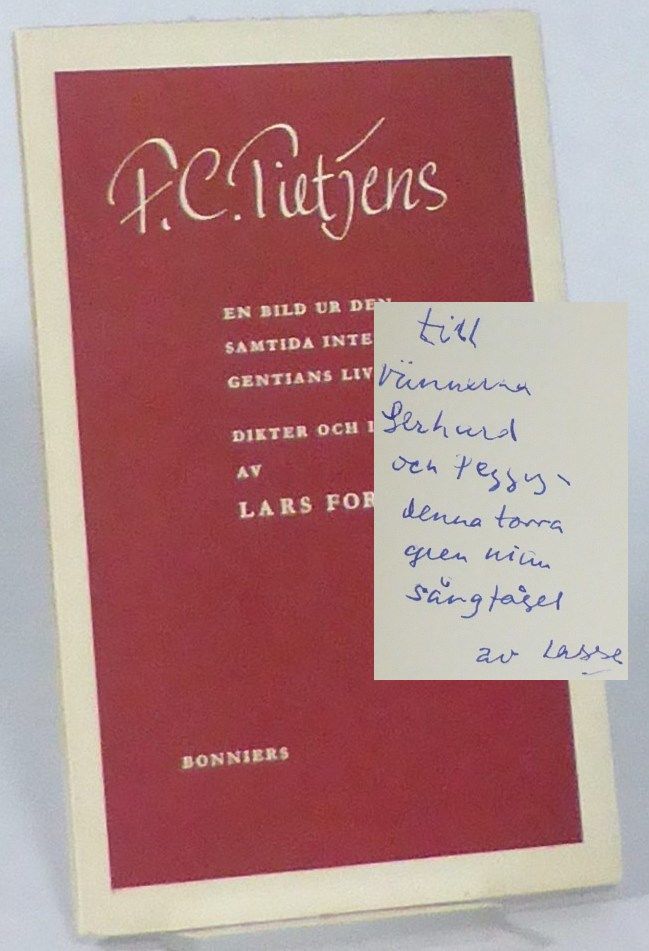 F.C. Tietjens
EN BILD UR DEN
SAMTIDA INTE
GENTIANS LIV
DIKTER OCH
AV
LARS FOR
BONNIERS
till
vännerna
Gerhard
och Peggy -
denna torra
gren
sångfågel
av Lasse